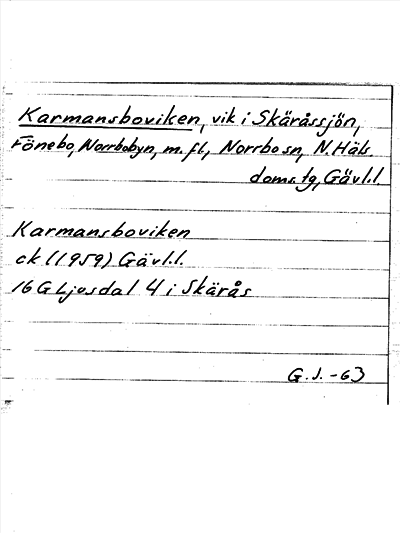 Karmansboviken, vik i Skäråssjön,
Fönebo, Norrbobyn, m. fl, Norrbo sn, N. Häls.
doms. tg, Gävl. l.
Karmansboviken
ck (1959) Gävl. l.
16 G Ljusdal 4 i Skärås
G. J. -63